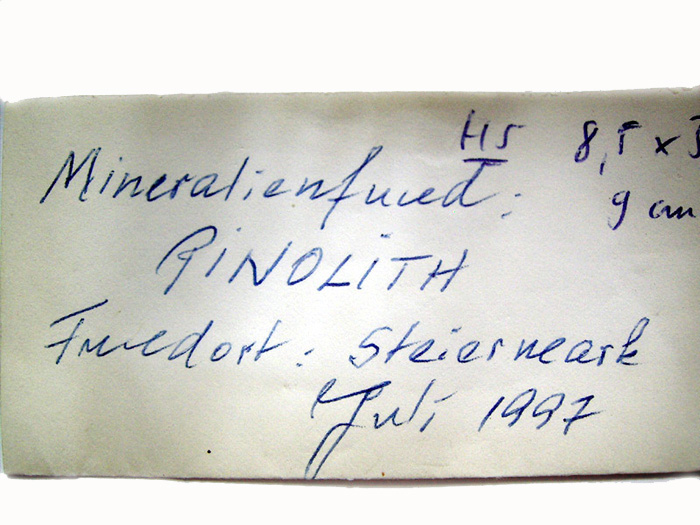 H5 8,5 x
Mineralienfund:
9 cm
PINOLITH
Fundort: Steiermark
Juli 1997